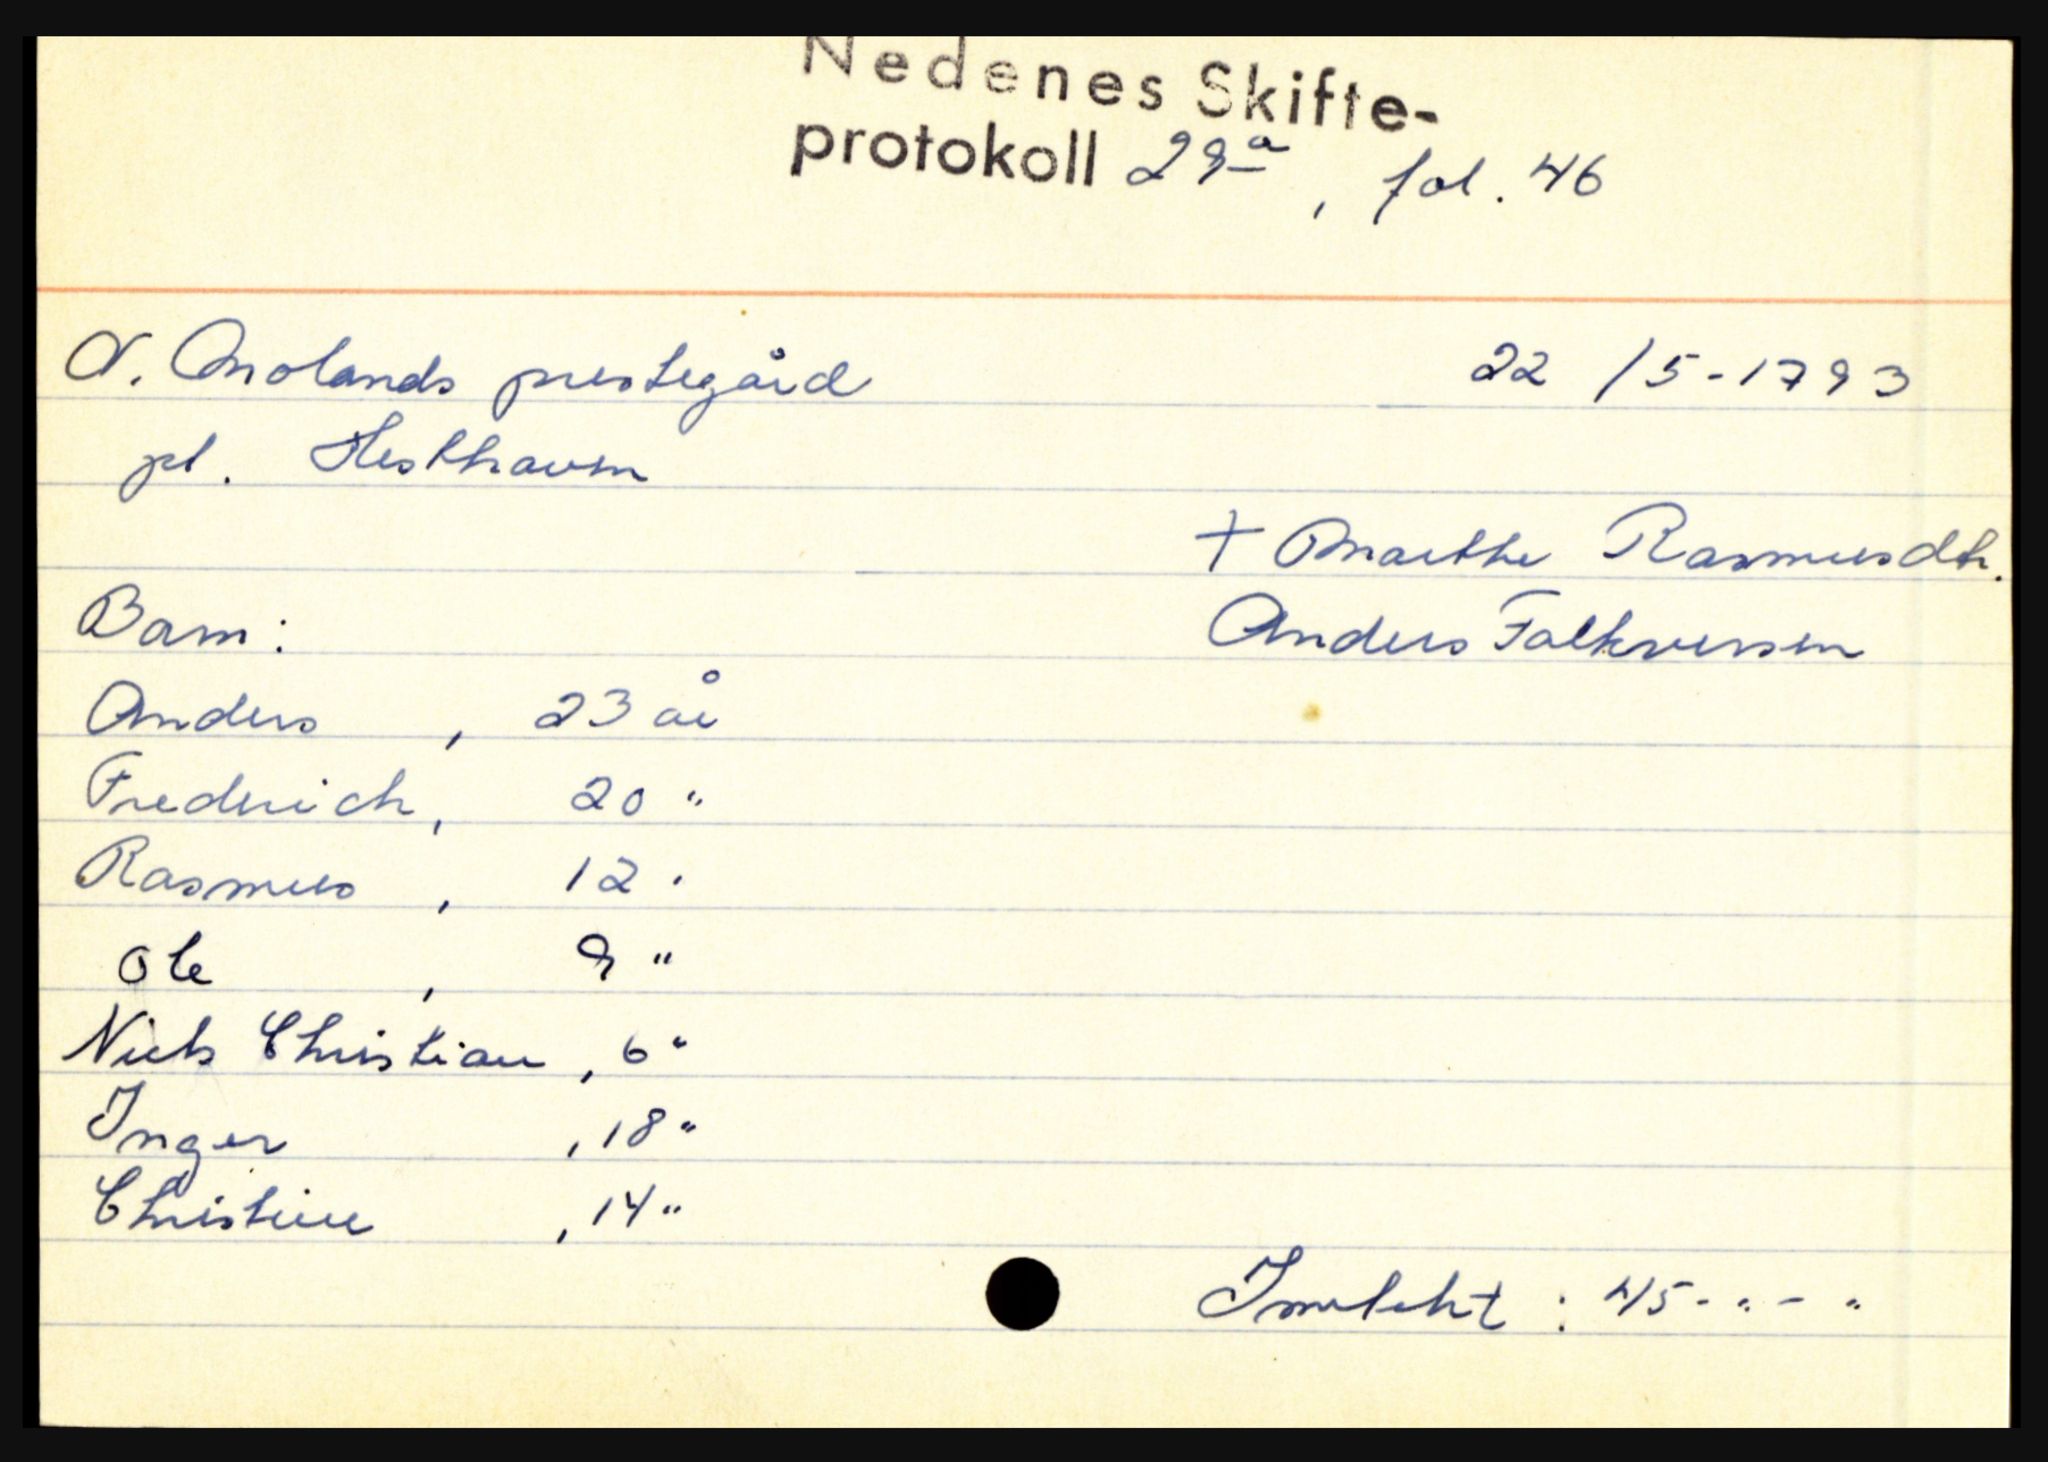 Nedenes Skifte-
protokoll 29ª, fol. 46
N. Molands prestegård 22/5-1793
pl. Hesthaven
+ Marthe Rasmusdtr.
Barn: Anders Falkversen
Anders, 23 år
Frederich, 20 "
Rasmus, 12 "
Ole, 9 "
Niels Christian, 6 "
Inger, 18 "
Christine, 14 "
: 45 - " - "